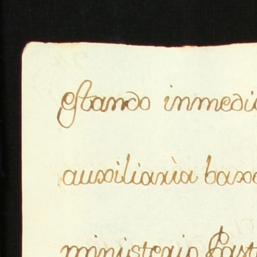 estando inmedi
auxiliaria baxo
ministerio Past